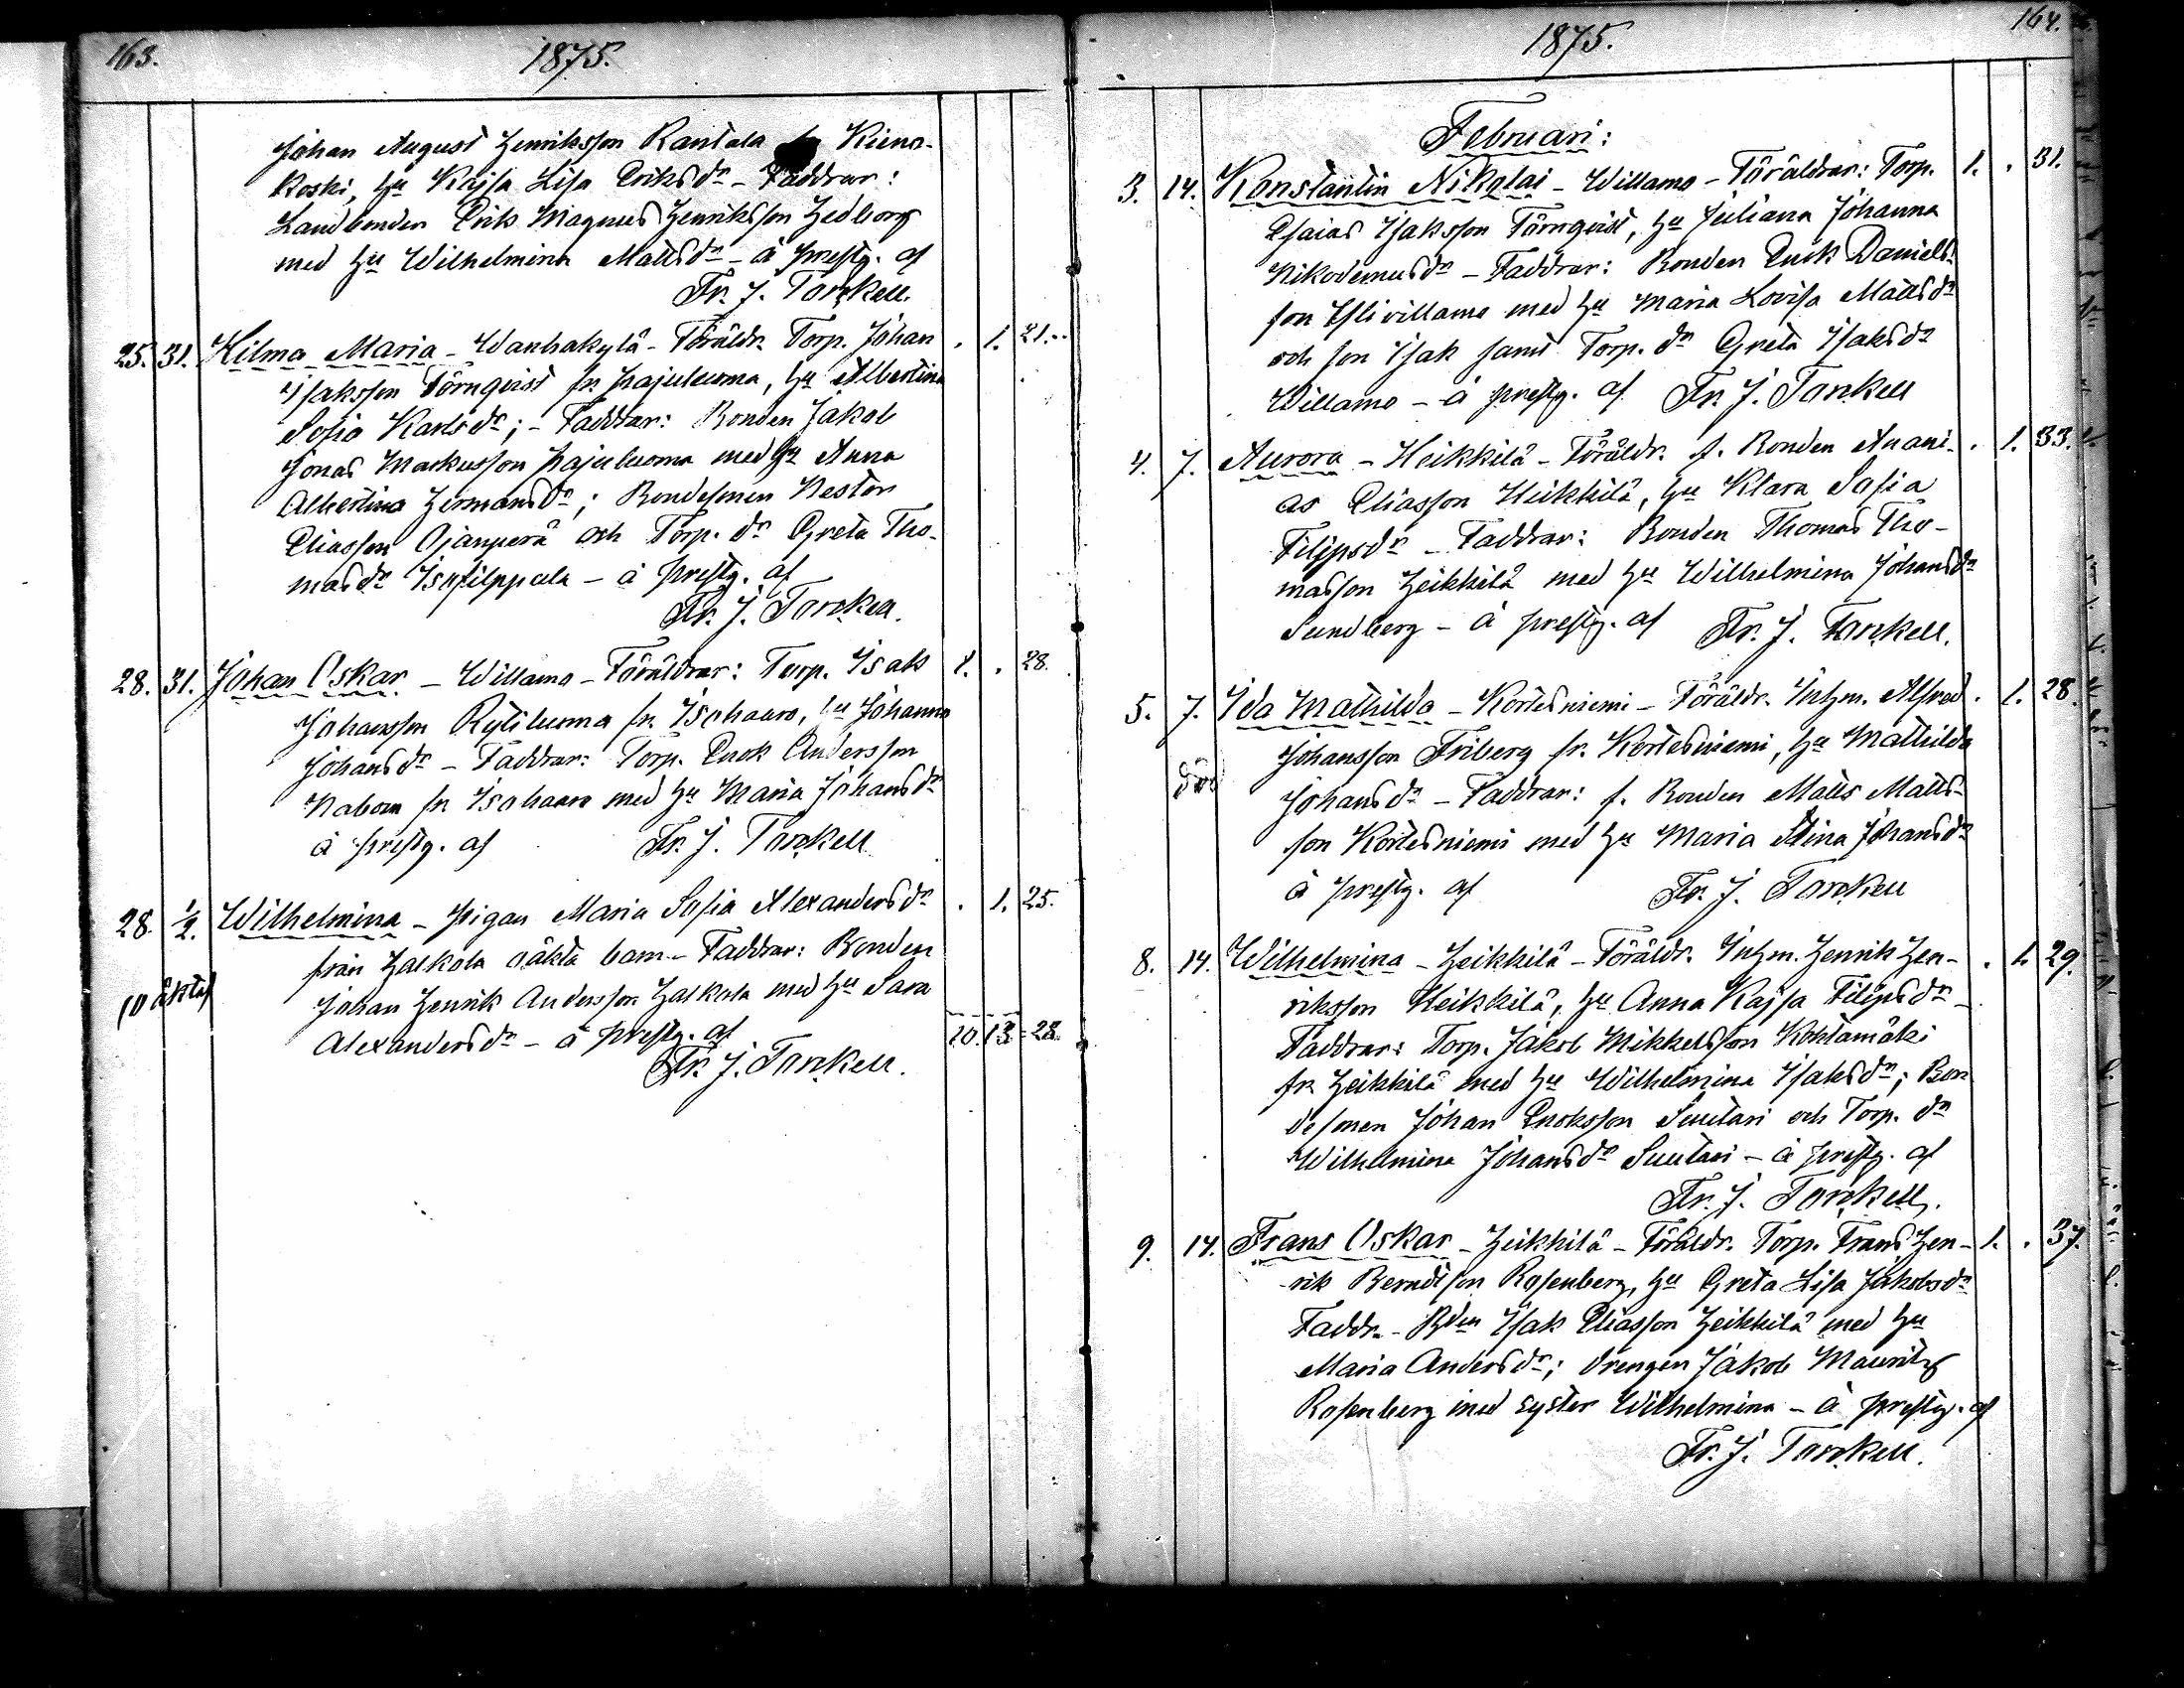 163.
1875.
Johan August Henriksson Rantala fr Kiuna-
koski, hu Kajsa Lisa Eriksdr - Faddrar:
Landbonden Erik Magnus Henriksson Hedborg
med hu Wilhelmina Mattsdr - à prestg. af
Fr. J. Tarckell.
25. 31. Hilma Maria - Wanhakylä - Föräldr. Torp. Johan . 1. 21.
Isaksson Törnqvist fr. Pajuluoma, hu Albertina
Sofia Karlsdr; - Faddrar: Bonden Jakob
Jonas Markusson Pajuluoma med hu Anna
Albertina Hermansdr; Bondesonen Nestor
Eliasson Ojanperä och Torp. dr Greta Tho-
masdr Isofilppula - à prestg. af
Fr. J. Tarckell.
28. 31. Johan Oskar - Willamo - Föräldrar: Torp. Isak 1. . 28.
Johansson Rytiluoma fr. Isohaaro, hu Johanna
Johansdr - Faddrar: Torp. Erik Andersson
fr Isohaaro med hu Maria Johansdr
à prestg. af Fr. J. Tarckell
28. 1/2. Wilhelmina - pigan Maria Sofia Alexandersdr . 1. 25.
från Halkola oäkta barn - Faddrar: Bonden
(oäkta) Johan Henrik Andersson Halkola med hu Sara
Alexandersdr - à prestg. af 10. 13 = 28.
Fr. J. Tarckell.
1875.
164.
Februari:
3. 14. Konstantin Nikolai - Willamo - Föräldrar: Torp. 1. . 31.
Esaias Isaksson Törnqvist, hu Juliana Johanna
Nikodemusdr - Faddrar: Bonden Erik Daniels-
son Ylivillamo med hu Maria Lovisa Mattsdr
och son Isak samt Torp. dr Greta Isaksdr
Willamo - à prestg. af Fr. J. Tarckell
4. 7. Aurora - Heikkilä - Föräldr. f. Bonden Anani- . 1. 33.
as Eliasson Heikkilä, hu Klara Sofia
Filipsdr - Faddrar: Bonden Thomas Tho-
masson Heikkilä med hu Wilhelmina Johansdr
Sundberg - à prestg. af Fr. J. Tarckell.
5. 7. Ida Mathilda - Kortesniemi - Föräldr. Inhm. Alfred . 1. 28.
Johansson Friberg fr. Kortesniemi, hu Mathilda
död Johansdr - Faddrar: f. Bonden Matts Matts-
son Kortesniemi med hu Maria Stina Johansdr
à prestg. af Fr. J. Tarckell
8. 14. Wilhelmina - Heikkilä - Föräldr. Inhm. Henrik Hen- . 1. 29.
riksson Heikkilä, hu Anna Kajsa Filipsdr -
Faddrar: Torp. Jakob Mikkelsson Kohtamäki
fr. Heikkilä med hu Wilhelmina Isaksdr; Bon
desonen Johan Eriksson Suutari och Torp. dr
Wilhelmina Johansdr Suutari - à prestg. af
Fr. J. Tarckell.
9. 14. Frans Oskar - Heikkilä - Föräldr. Torp. Frans Hen- 1. . 37.
rik Berndtson Rosenberg, hu Greta Lisa Jakobsdr
Faddr. - Bden Isak Eliasson Heikkilä med hu
Maria Andersdr; drengen Jakob Mauritz
Rosenberg med syster Wilhelmina - à prestg. af
Fr. J. Tarckell.